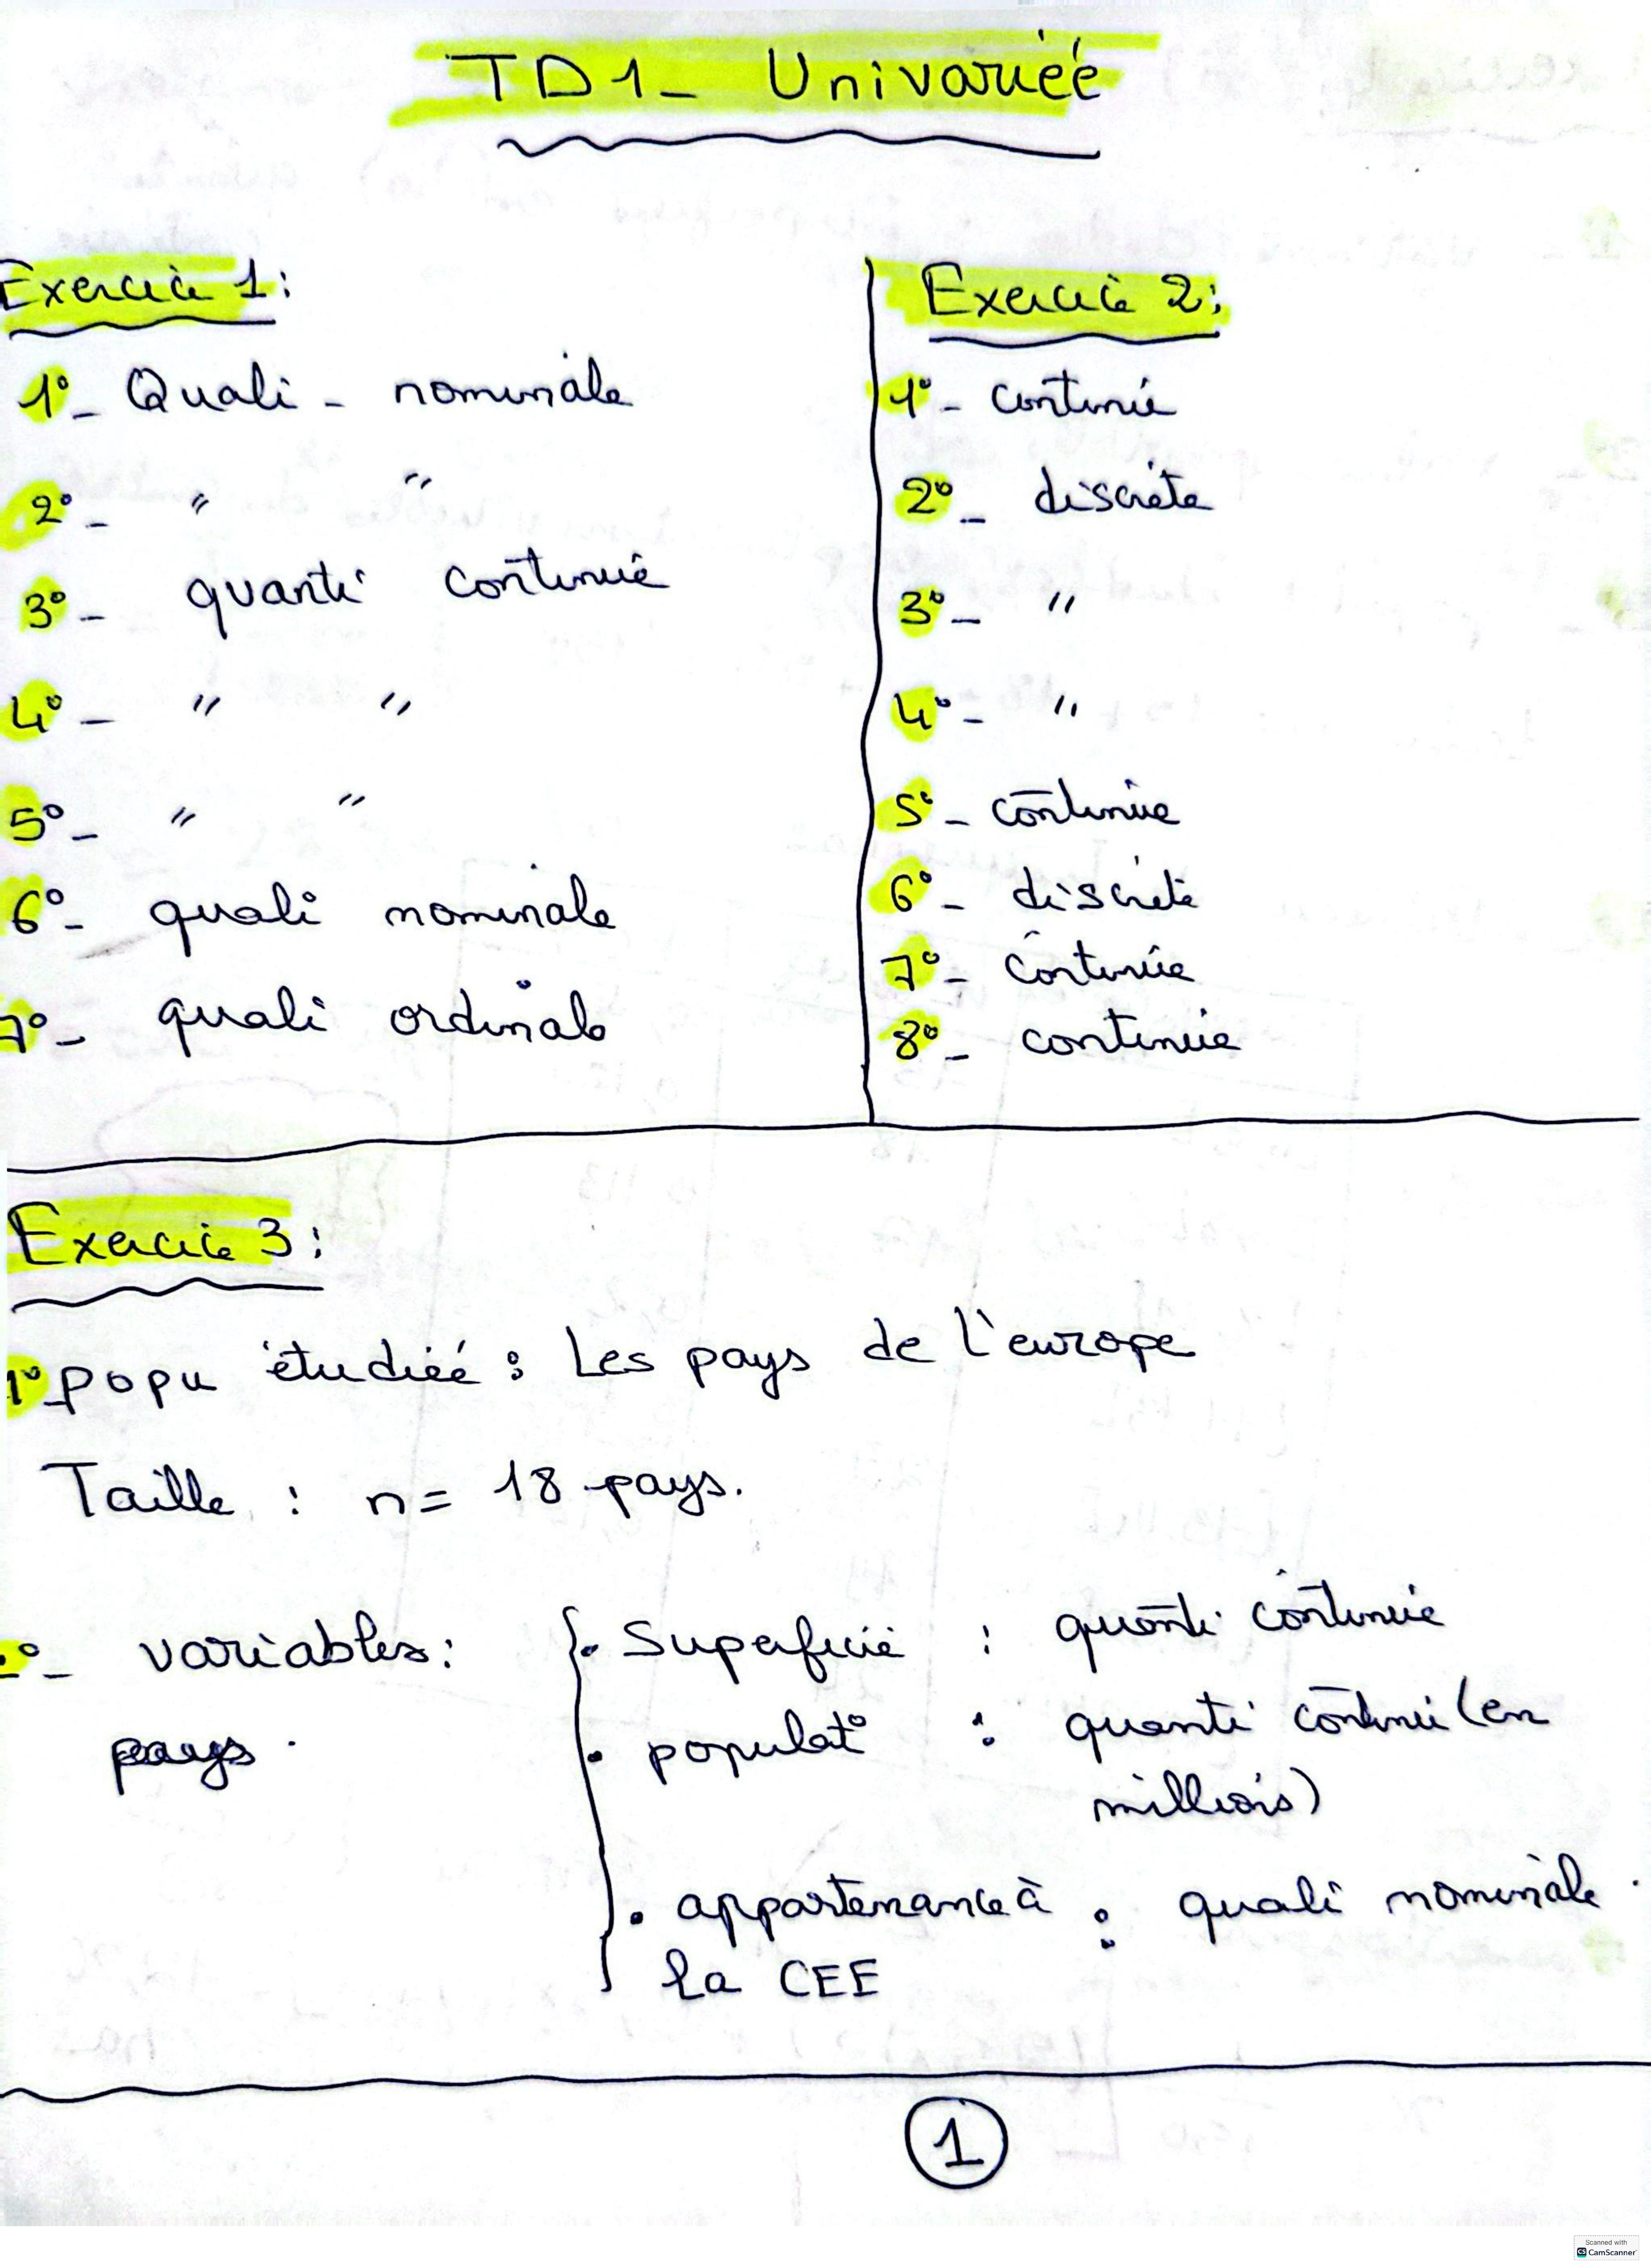 TD1_ Univariée
Exercice 1:
1°_ Quali - nominale
2°_ " "
3°_ quanti continue
4°_ " "
5°_ " "
6°_ quali nominale
7°_ quali ordinale
Exercice 2:
1°_ continue
2°_ discrète
3°_ "
4°_ "
5°_ continue
6°_ discrète
7°_ continue
8°_ continue
Exercice 3:
1°_ popu étudiée : Les pays de l'europe
Taille : n= 18 pays.
°_ variables:
pays.
• Superficie : quanti continue
• populat° : quanti continue (en
millions)
• appartenance à : quali nominale.
la CEE
1
Scanned with
CS CamScanner